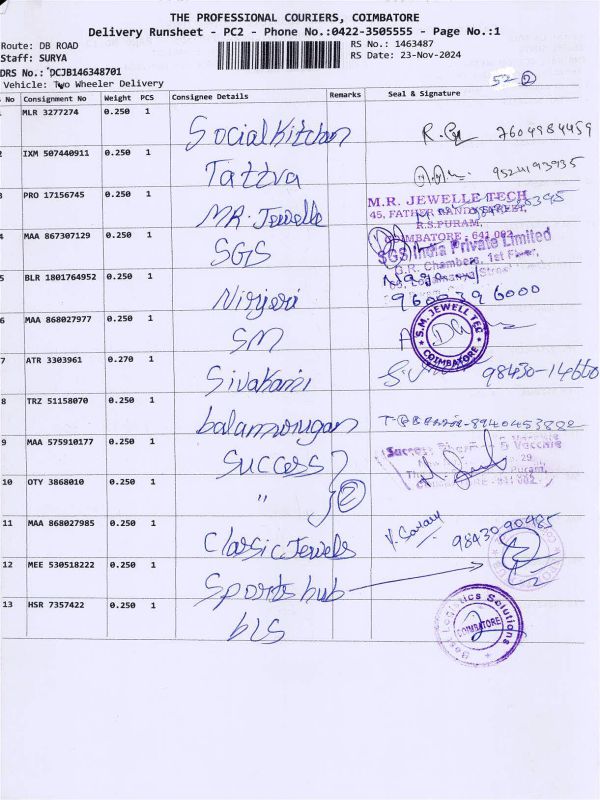 THE PROFESSIONAL COURIERS, COIMBATORE
Delivery Runsheet - PC2 - Phone No.:0422-3505555 - Page No.:1
Route: DB ROAD
RS No.: 1463487
Staff: SURYA
RS Date: 23-Nov-2024
DRS No.: DCJB146348701
Vehicle: Two Wheeler Delivery
52 2
No Consignment No Weight PCS Consignee Details Remarks Seal & Signature
MLR 3277274 0.250 1 Social Kitchen 7604984459
IXM 507440911 0.250 1 Tattva 9524193935
PRO 17156745 0.250 1 MR. Jewelle
M.R. JEWELLE TECH
R.S.PURAM,
COIMBATORE - 641 002
MAA 867307129 0.250 1 SGS
SGS India Private Limited
G.R. Chambers, 1st Floor,
BLR 1801764952 0.250 1 Nirjari
9600396000
MAA 868027977 0.250 1 SM
S.M. JEWELL TEC
COIMBATORE
7 ATR 3303961 0.270 1 Sivakami 98430-14660
8 TRZ 51158070 0.250 1 balamurugan 8940453882
9 MAA 575910177 0.250 1 Success
10 OTY 3868010 0.250 1 " 2
11 MAA 868027985 0.250 1 Classic Jewels V. Saravy 9843090485
12 MEE 530518222 0.250 1 Sports hub
13 HSR 7357422 0.250 1 bls
Best Logistics Solutions
COIMBATORE